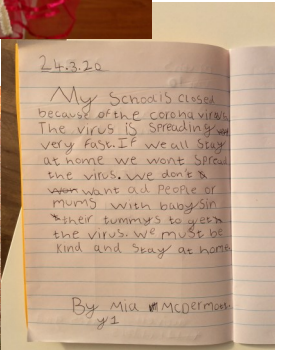 24.3.20
My School is closed
because of the corona virus
The virus is spreading
very fast. If we all stay
at home we wont spread
the virus. We don't
want ad people or
mums with babys in
their tummys to get
the virus. We must be
kind and stay at home
By Mia McDermott
y1